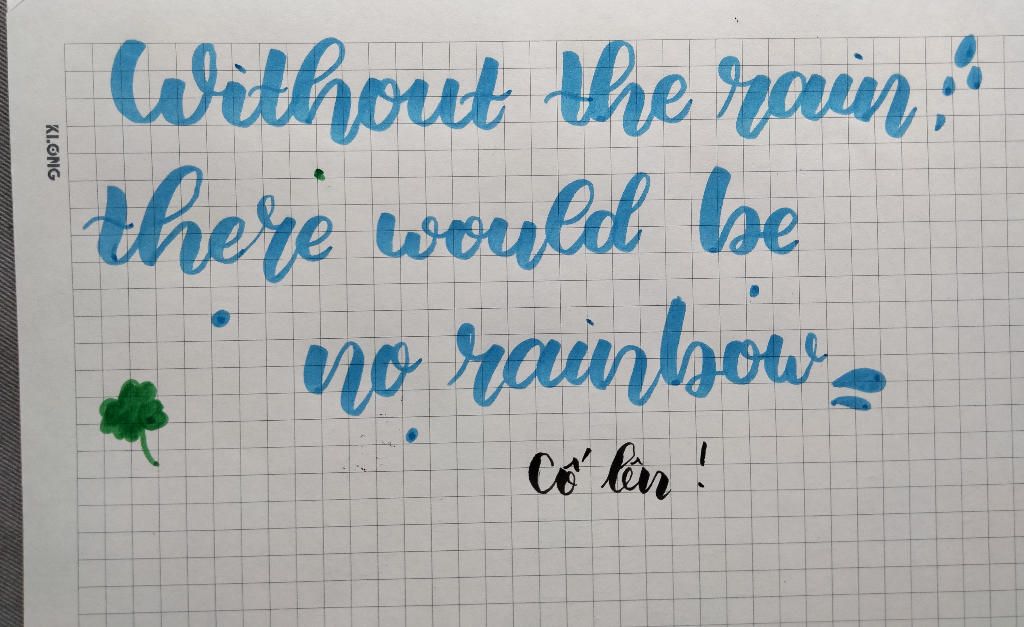 KLONG
Without the rain,
there would be
no rainbow
Cố lên !